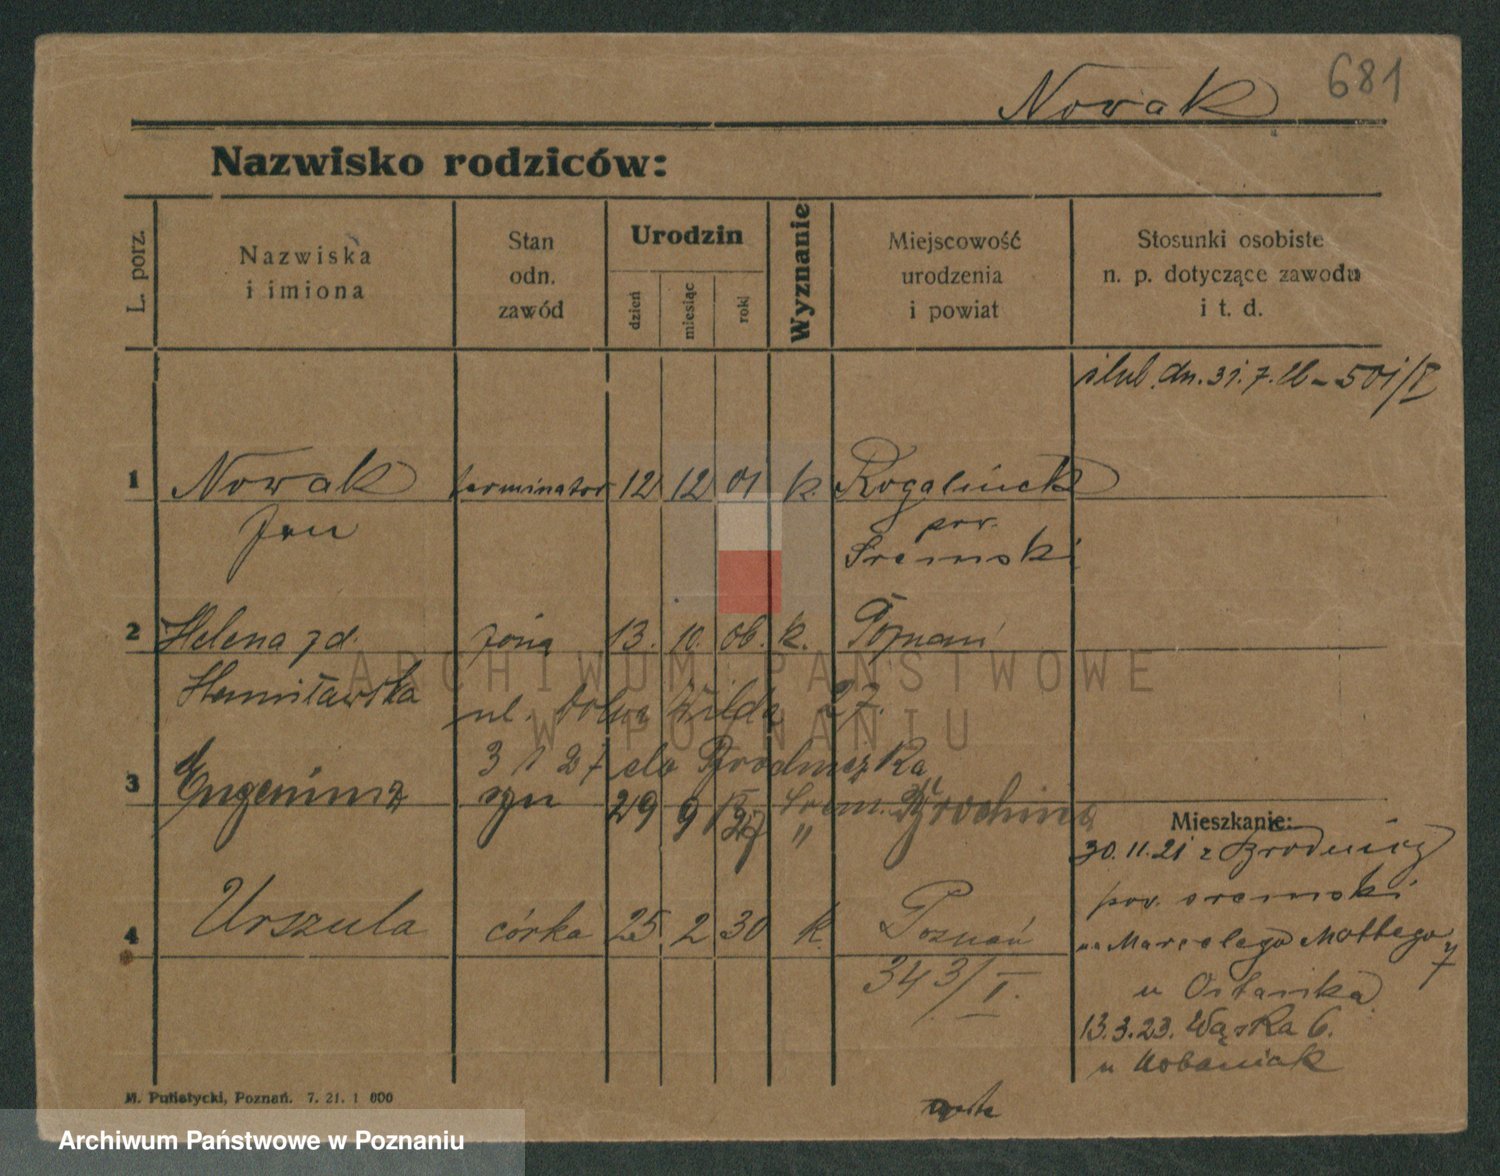 Nowak 681
Nazwisko rodziców:
L. porz.
Nazwiska
i imiona
Stan
odn.
zawód
Urodzin
dzień
miesiąc
rok
Wyznanie
Miejscowość
urodzenia
i powiat
Stosunki osobiste
n. p. dotyczące zawodu
i t. d.
ślub dn. 31.7.26 - 501/I
1 Nowak terminator 12 12 01 k. Rogalinek
Jan pow.
Śremski
2 Helena zd. żona 13. 10. 06. k. Poznań
ul. Dolna Wilda 27.
3 1 27 do
3 Eugeniusz syn 29 9 27 " Śrem.
Mieszkanie:
30.11.21 z Brodnicy
pow. śremski
na Marcelego Mottego 7
u
13.3.23. Wąska 6.
u
4 Urszula córka 25 2 30 k. Poznań
343/I.
M. Putiatycki, Poznań. 7. 21. 1 000
ARCHIWUM PAŃSTWOWE
W POZNANIU
Archiwum Państwowe w Poznaniu